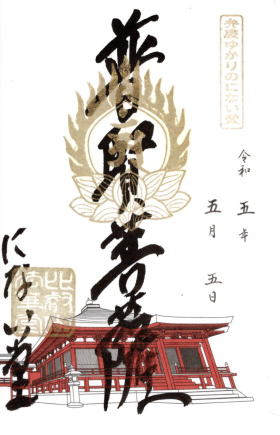 弁慶ゆかりのにない堂
令和五年
五月五日
普賢菩薩
にない堂